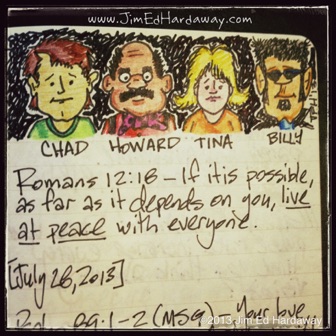 www.JimEdHardaway.com
CHAD HOWARD TINA BILLY
Romans 12:18 – If it is possible,
as far as it depends on you, live
at peace with everyone.
[July 28, 2013]
2013 Jim Ed Hardaway
89:1-2 (MSG) Your love,